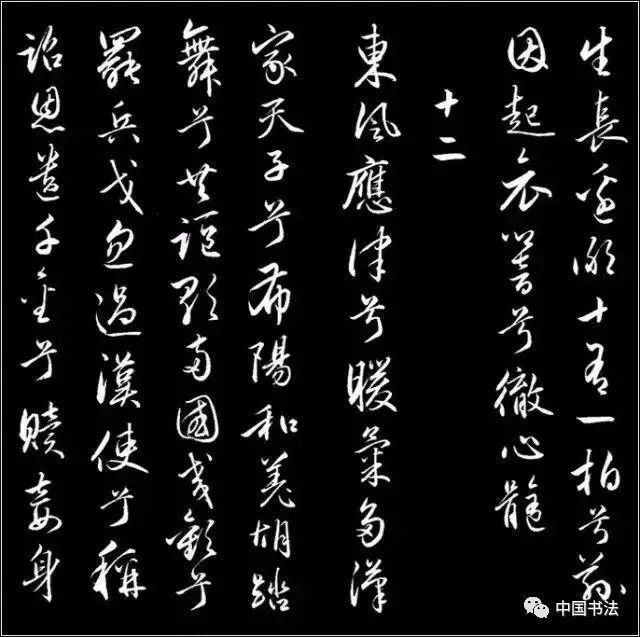 生長邊鄙十有一拍兮茲
因起哀響兮徹心髓
十二
東風應律兮暖氣多漢
家天子兮布陽和羌胡蹈
舞兮共謳歌兩國交歡兮
罷兵戈忽遇漢使兮稱
詔恩遣千金兮贖妾身
中国书法